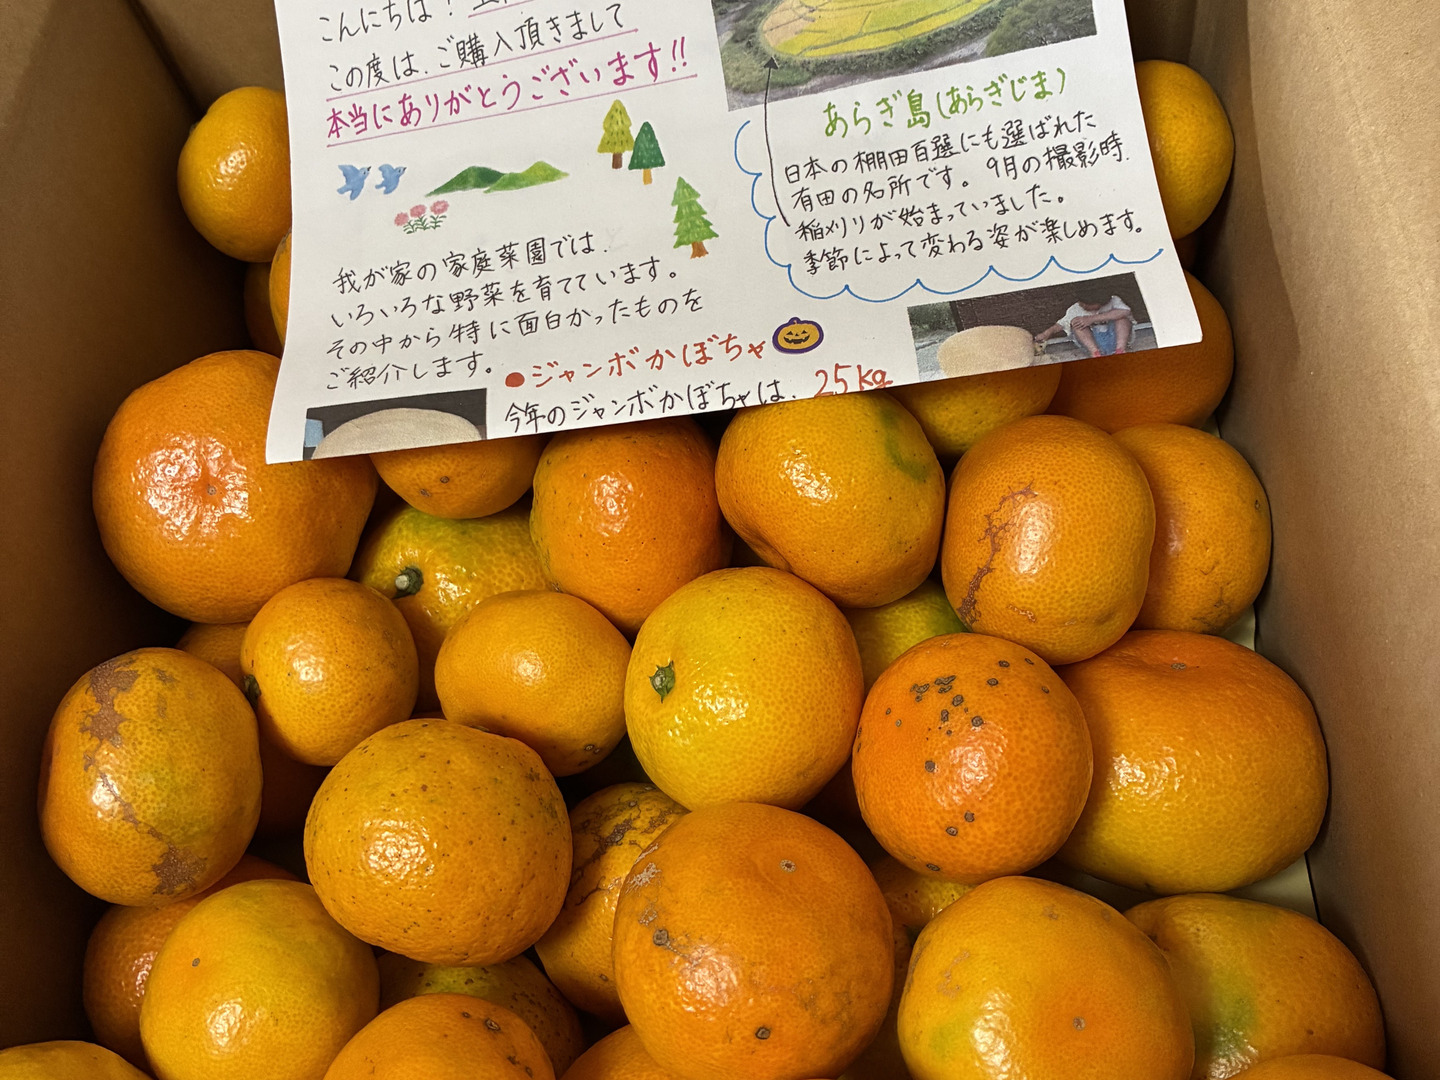 こんにちは!
この度は、ご購入頂きまして
本当にありがとうございます!!
我が家の家庭菜園では、
いろいろな野菜を育てています。
その中から特に面白かったものを
ご紹介します。
●ジャンボかぼちゃ
今年のジャンボかぼちゃは、25kg
あらぎ島(あらぎじま)
日本の棚田百選にも選ばれた
有田の名所です。9月の撮影時、
稲刈りが始まっていました。
季節によって変わる姿が楽しめます。